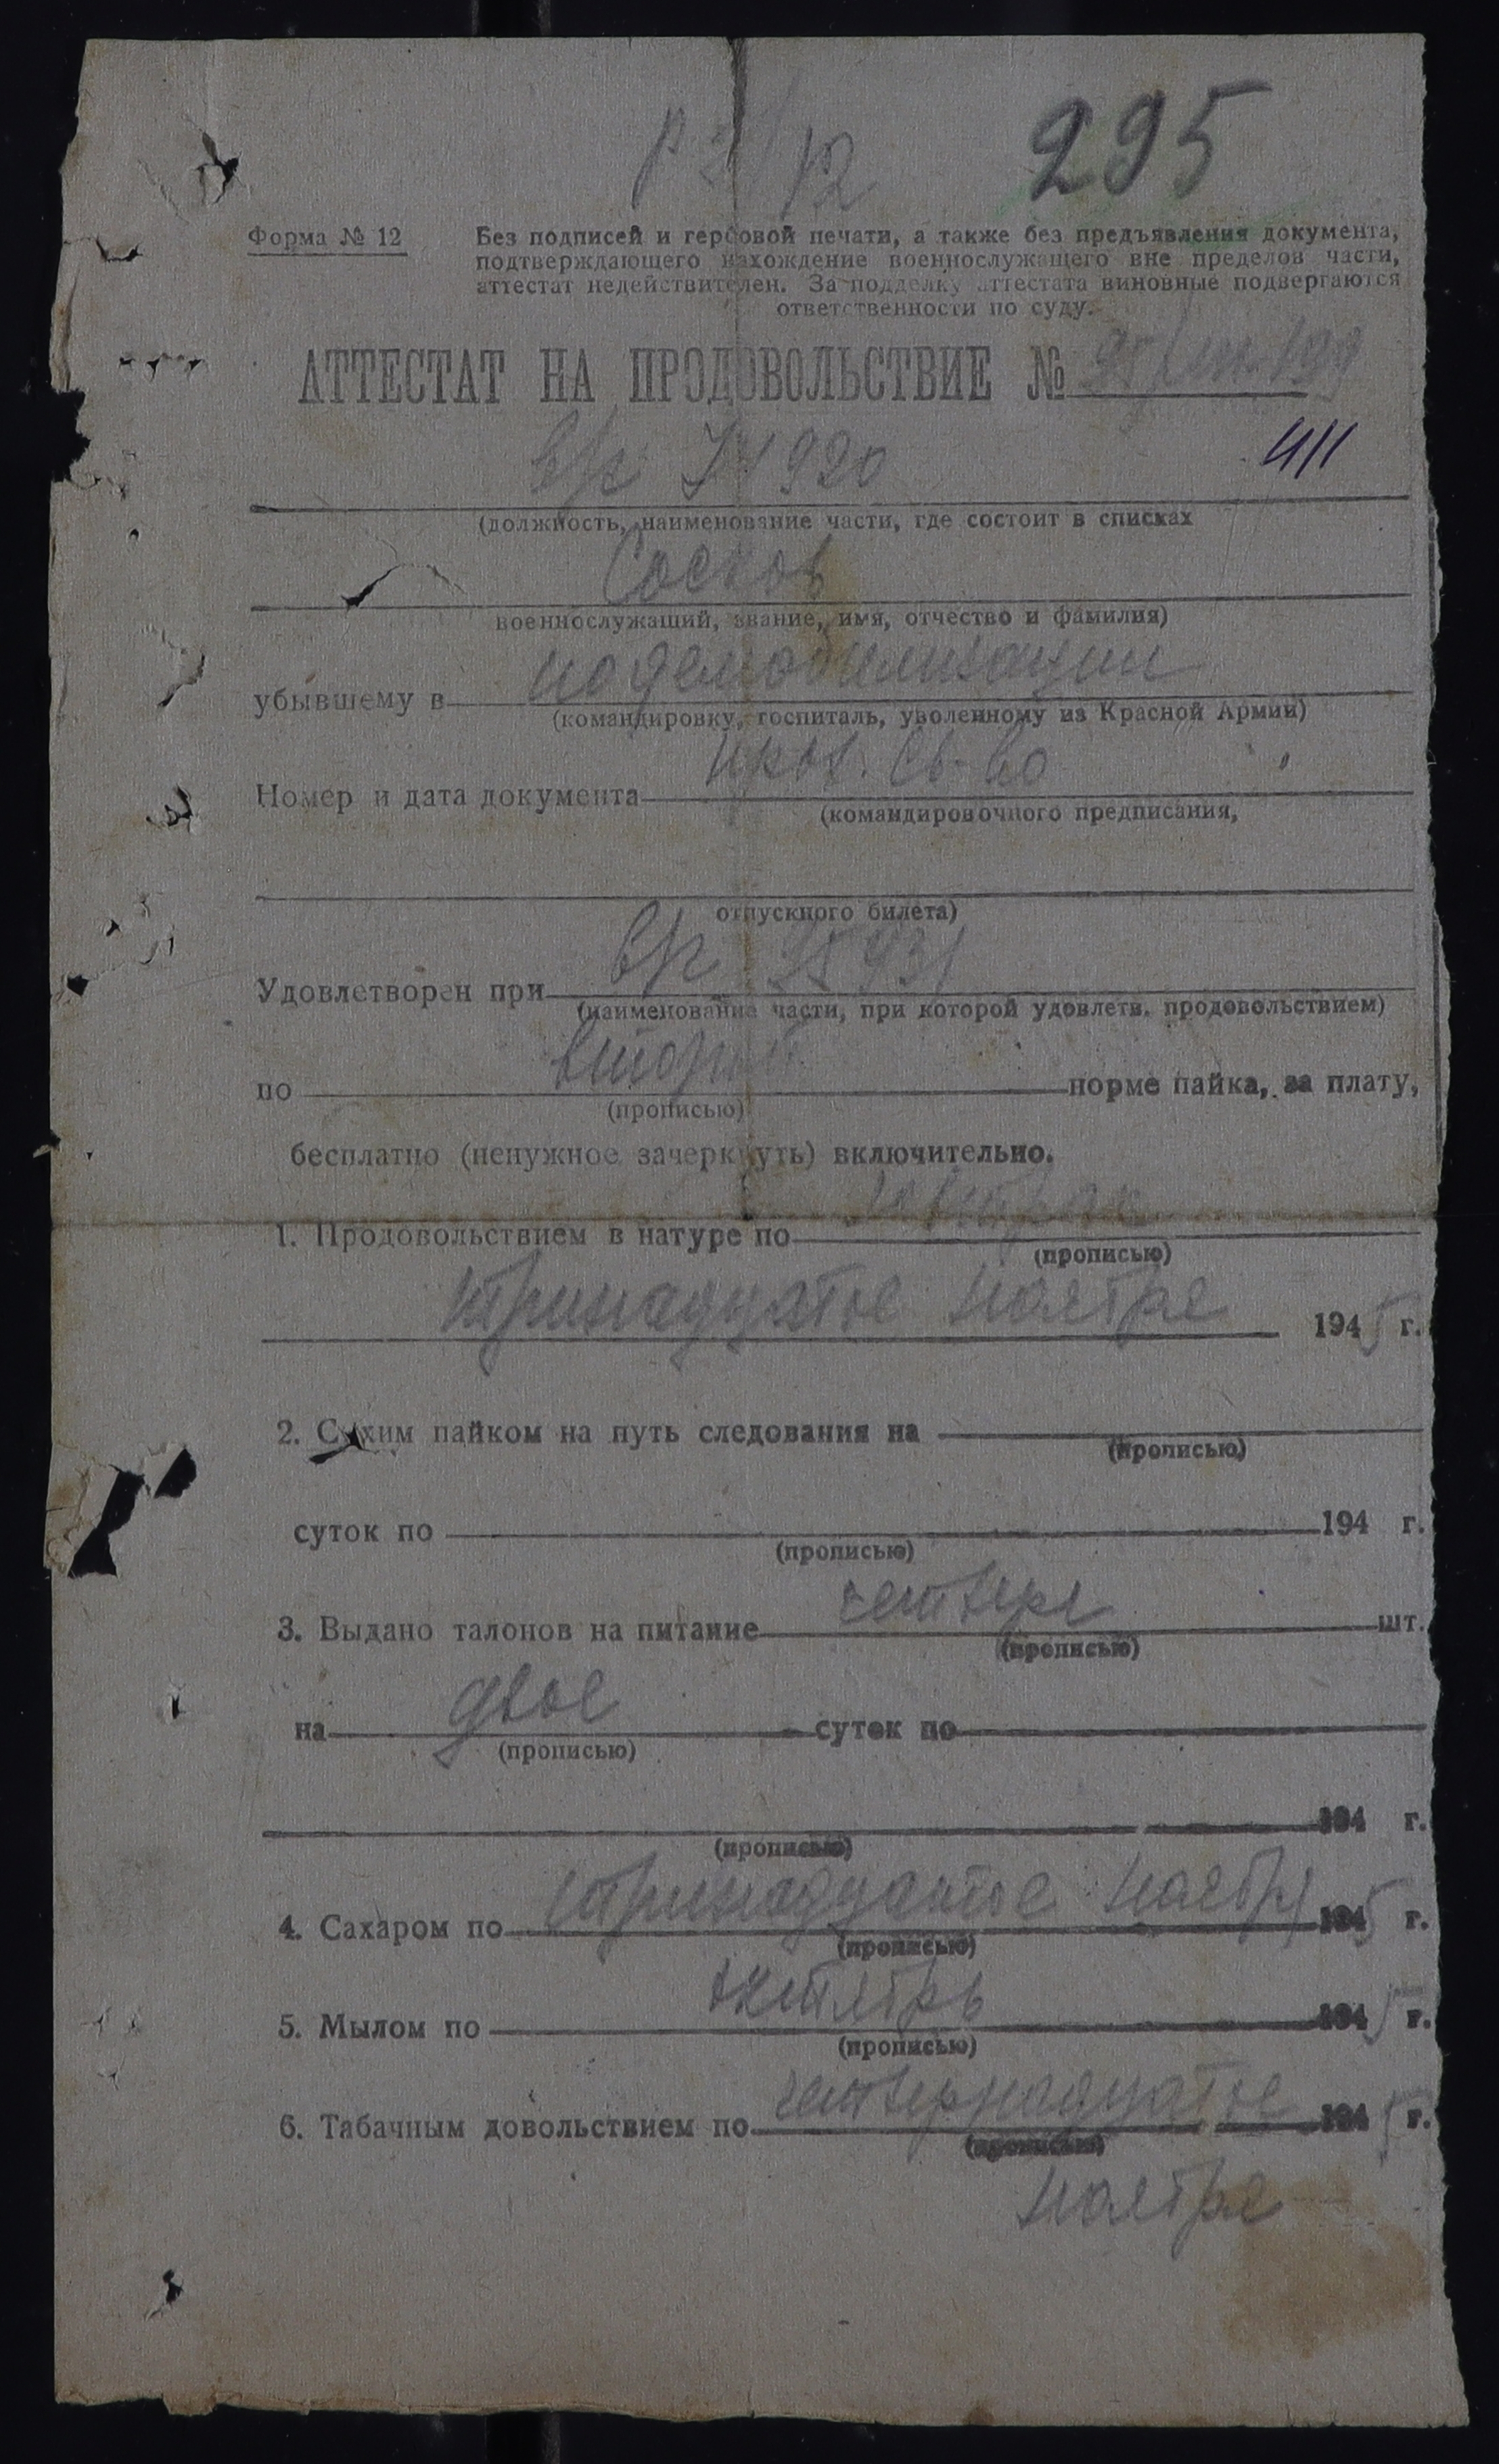 295
Форма № 12
Без подписей и гербовой печати, а также без предъявления документа,
подтверждающего нахождение военнослужащего вне пределов части,
аттестат недействителен. За подделку аттестата виновные подвергаются
ответственности по суду.
АТТЕСТАТ НА ПРОДОВОЛЬСТВИЕ №
411
(должность, наименование части, где состоит в списках
Сосков
военнослужащий, звание, имя, отчество и фамилия)
убывшему в по демобилизации
(командировку, госпиталь, уволенному из Красной Армии)
Номер и дата документа
(командировочного предписания,
отпускного билета)
Удовлетворен при
(наименование части, при которой удовлетв. продовольствием)
по второй норме пайка, за плату,
(прописью)
бесплатно (ненужное зачеркнуть) включительно.
1. Продовольствием в натуре по завтрак
(прописью)
тринадцатое ноября 1945 г.
2. Сухим пайком на путь следования на
(прописью)
суток по 194 г.
(прописью)
3. Выдано талонов на питание четыре шт.
(прописью)
на двое суток по
(прописью)
194 г.
(прописью)
4. Сахаром по тринадцатое ноября 1945 г.
(прописью)
5. Мылом по октябрь 1945 г.
(прописью)
6. Табачным довольствием по четырнадцатое 1945 г.
(прописью)
ноября